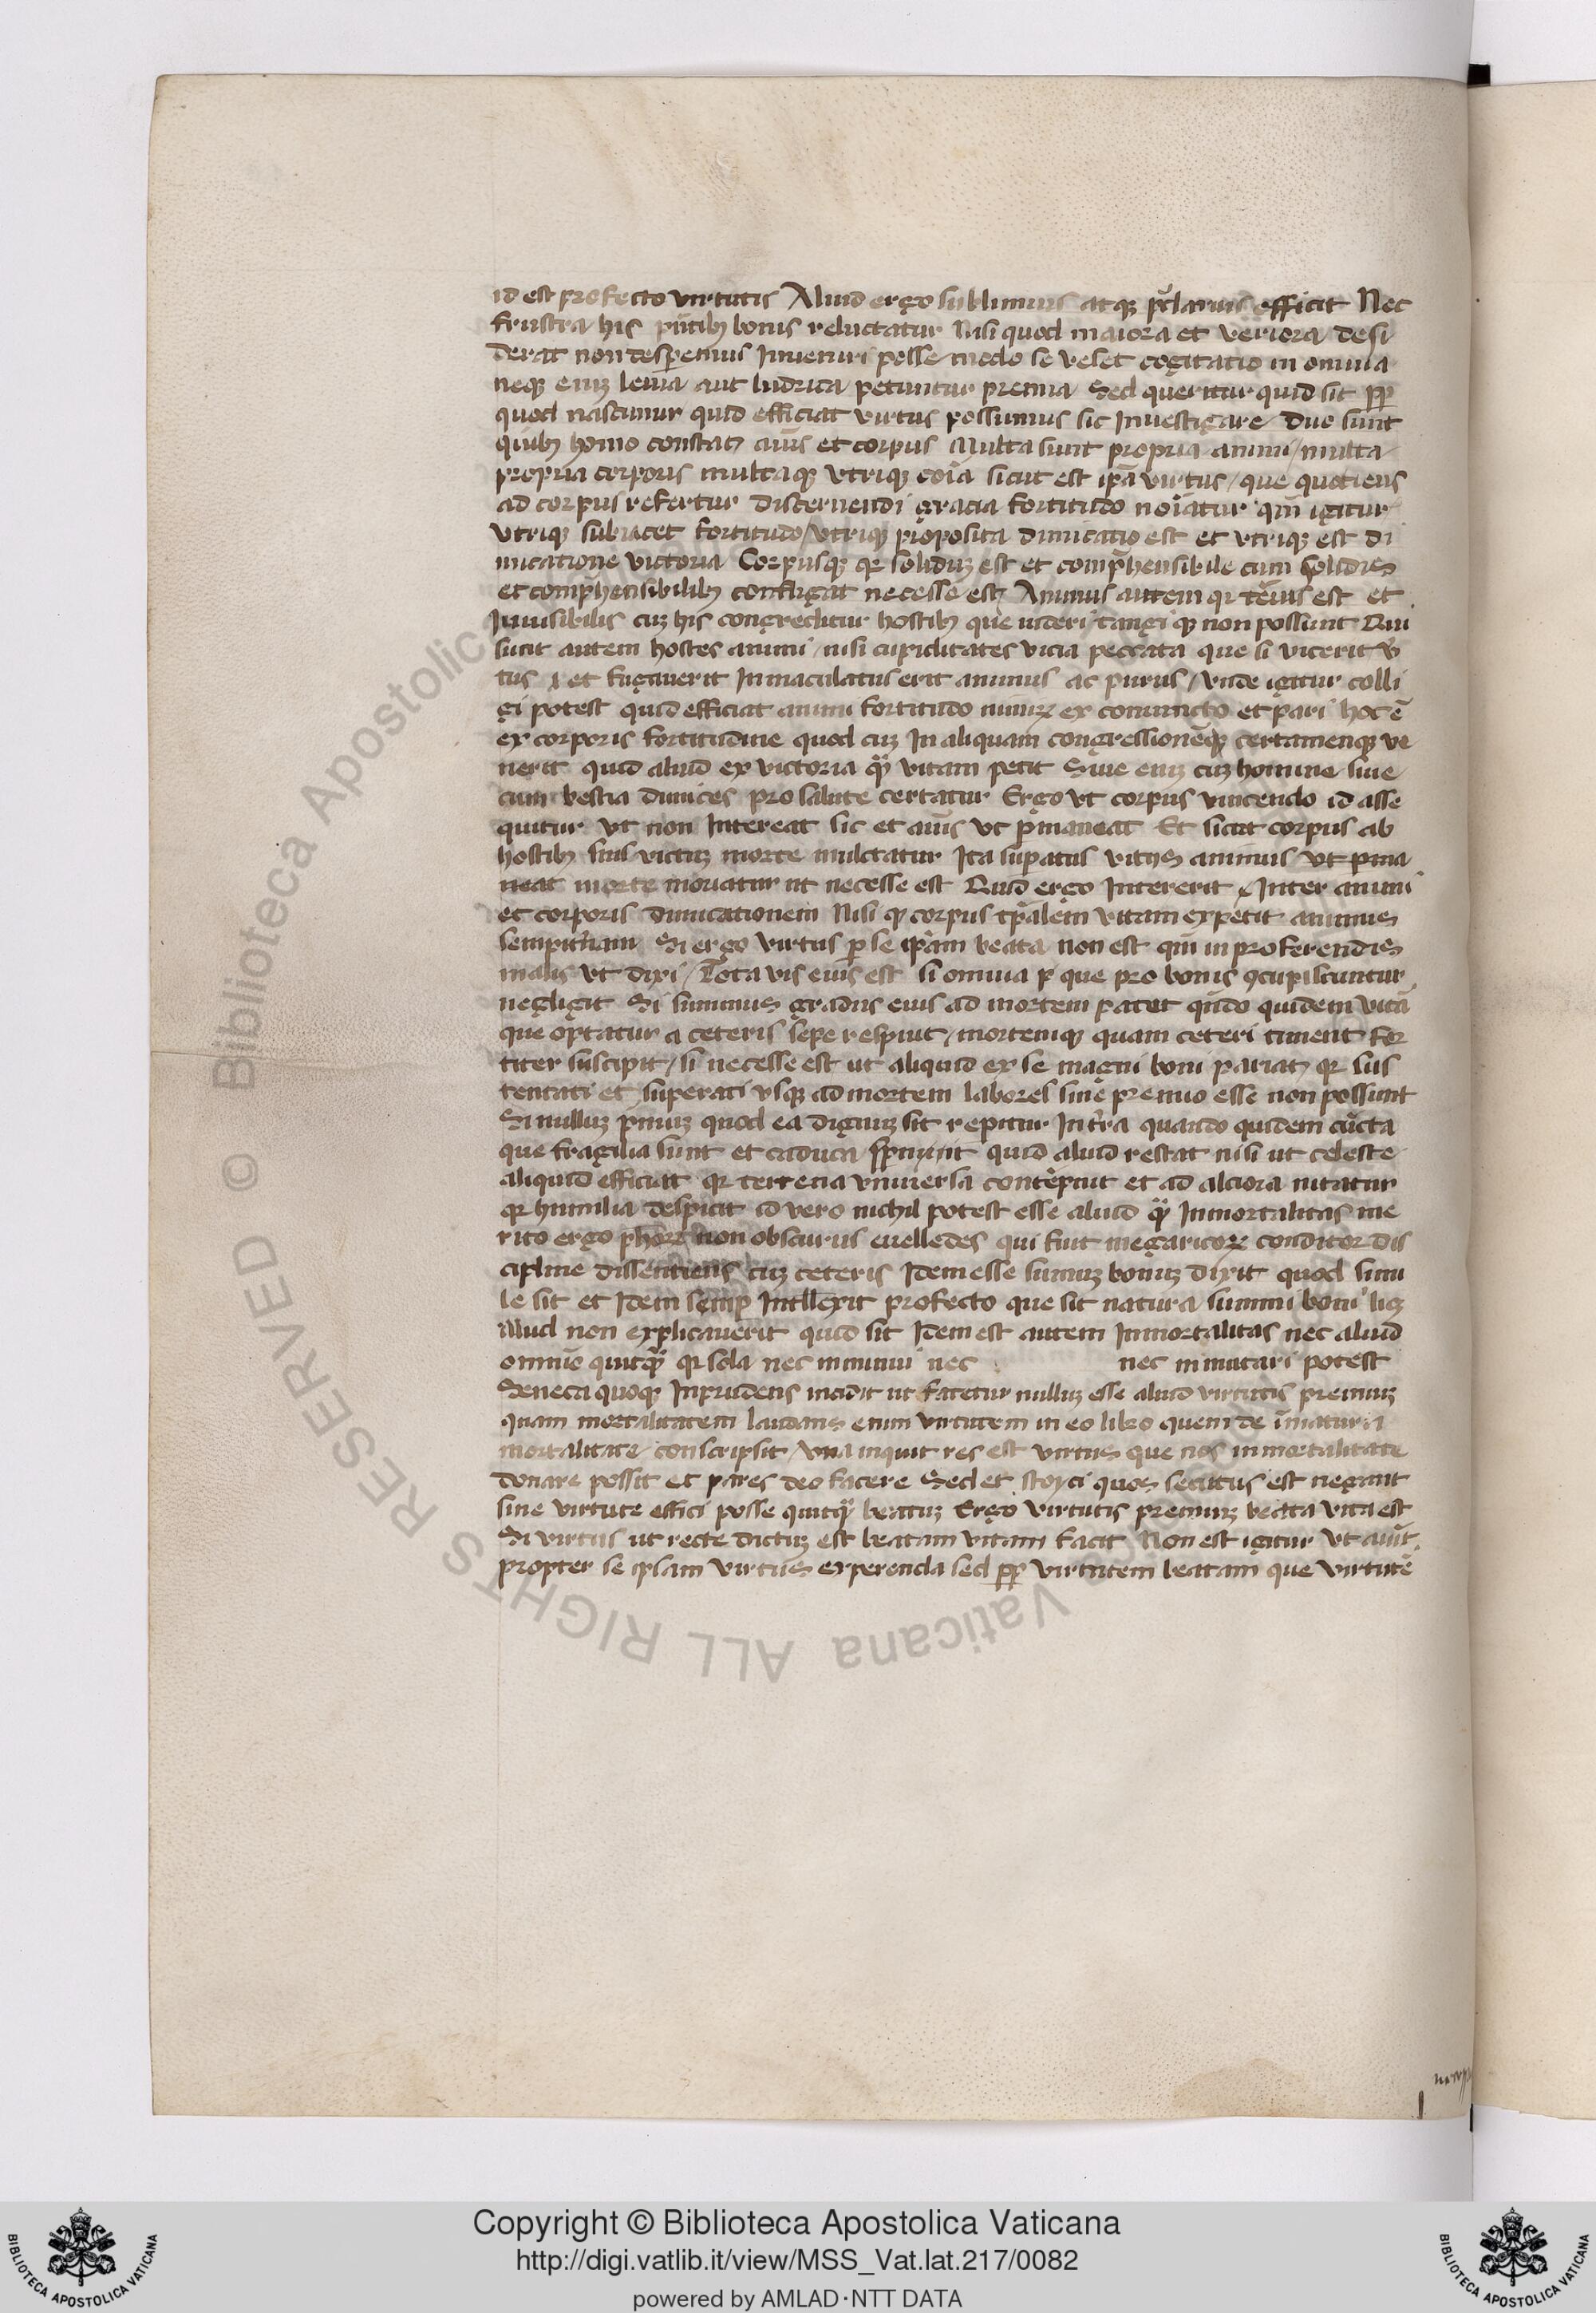 id est profecto virtutis Aliud ergo sublimius atqꝫ p̄clarius efficit Nec
frustra his pn̄tibꝫ bonis reluctatur Nisi quod maiora et veriora desi
derat non desperemus Inueniri posse modo se verset cogitatio in omnia
neqꝫ eniꝫ leuia aut ludrica petuntur premia Sed queritur quid sit ꝓp̄
quod nascimur quid efficiat virtus possumus sic Inuestigare Duo sunt
quibꝫ homo constat ai᷒s et corpus Multa sunt propria animi / multa
propria corporis multaqꝫ vtriqꝫ coīa sicut est ip̄a virtus / que quotiens
ad corpus refertur discernendi gracia fortitudo noīatur qm̄ igitur
vtriqꝫ subiacet fortitudo / vtriqꝫ proposita dimicatio est et vtriqꝫ est di
micatione victoria Corpusqꝫ qr solidūꝫ est et comp̄hensibile cum solidis
et comp̄hensibilibꝫ confligat necesse est Animus autem qr tēuis est et
Inuisibilis cuꝫ his congreditur hostibꝫ que uideri tangi qꝫ non possunt Qui
sunt autem hostes animi / nisi cupiditates vicia peccata que si vicerit v̄
tus et fugauerit Inmaculatus erit animus ac purus / vnde igitur colli
gi potest quid efficiat animi fortitudo nimiꝝ ex coniuncto et pari hoc ē
ex corporis fortitudine quod cuꝫ In aliquam congressionēqꝫ certamenqꝫ ve
nerit quid aliud ex victoria qꝫ̄ vitam petit Siue eniꝫ cuꝫ homine siue
cum bestia dimices pro salute certatur Ergo vt corpus vincendo id asse
quitur vt non Intereat sic et ai᷒s vt ꝑmaneat Et sicut corpus ab
hostibꝫ suis victuꝫ morte mulctatur Ita suꝑatus vitijs animus vt ꝑma
neat morte moriatur ut necesse est Quid ergo Intererit Inter animi
et corporis dimicationem Nisi qꝫ corpus tp̄alem vitam expetit animus
sempit̄nam Si ergo virtus ꝑ se ip̄am beata non est qm̄ in proferendis
malis vt dixi / Tota vis eius est si omnia ꝑ que pro bonis ꝯcupiscuntur
negligit Si summus gradus eius ad mortem patet qn̄do quidem vitā
que optatur a ceteris sepe respuit / mortemqꝫ quam ceteri timent for
titer suscipit / si necesse est ut aliquid ex se magni boni pariat qr sus
tentati et superati vsqꝫ ad mortem labores sine premio esse non possunt
Si nulluꝫ p̄miuꝫ quod ea dignuꝫ sit reꝑitur In t̄ra quando quidem cūcta
que fragilia sunt et caduca sp̄nunt quid aliud restat nisi ut celeste
aliquid efficiat qr terrena vniuersa contēpnit et ad alciora nitatur
qr humilia despicit id vero nichil potest esse aliud qꝫ̄ Inmortalitas me
rito ergo ph̄oꝝ non obscurus euclides qui fuit megaricoꝝ conditor dis
cipline dissentiens cuꝫ ceteris Idem esse summuꝫ bonuꝫ dixit quod simi
le sit et Idem semꝑ Intellexit profecto que sit natura summi boni licꝫ
illud non explicauerit quid sit Idem est autem Inmortalitas nec aliud
omnīe quitqꝫ̄ qr sola nec minui nec nec inmutari potest
Seneca quoqꝫ Inprudens incidit ut fatetur nulluꝫ esse aliud virtutis premiuꝫ
quam mortalitatem laudans enim virtutem in eo libro quem de īmatura
mortalitate conscripsit / vna inquit res est virtus que nos inmortalitate
donare possit et pares deo facere Sed et stoyci quos secutus est negant
sine virtute effici posse quitqꝫ̄ beatuꝫ Ergo virtutis premiuꝫ beata vita est
Si virtus ut recte dictuꝫ est beatam vitam facit Non est igitur vt aiūt
propter se ipsam virtus experenda sed ꝓp̄ virtutem beatam que virtutē